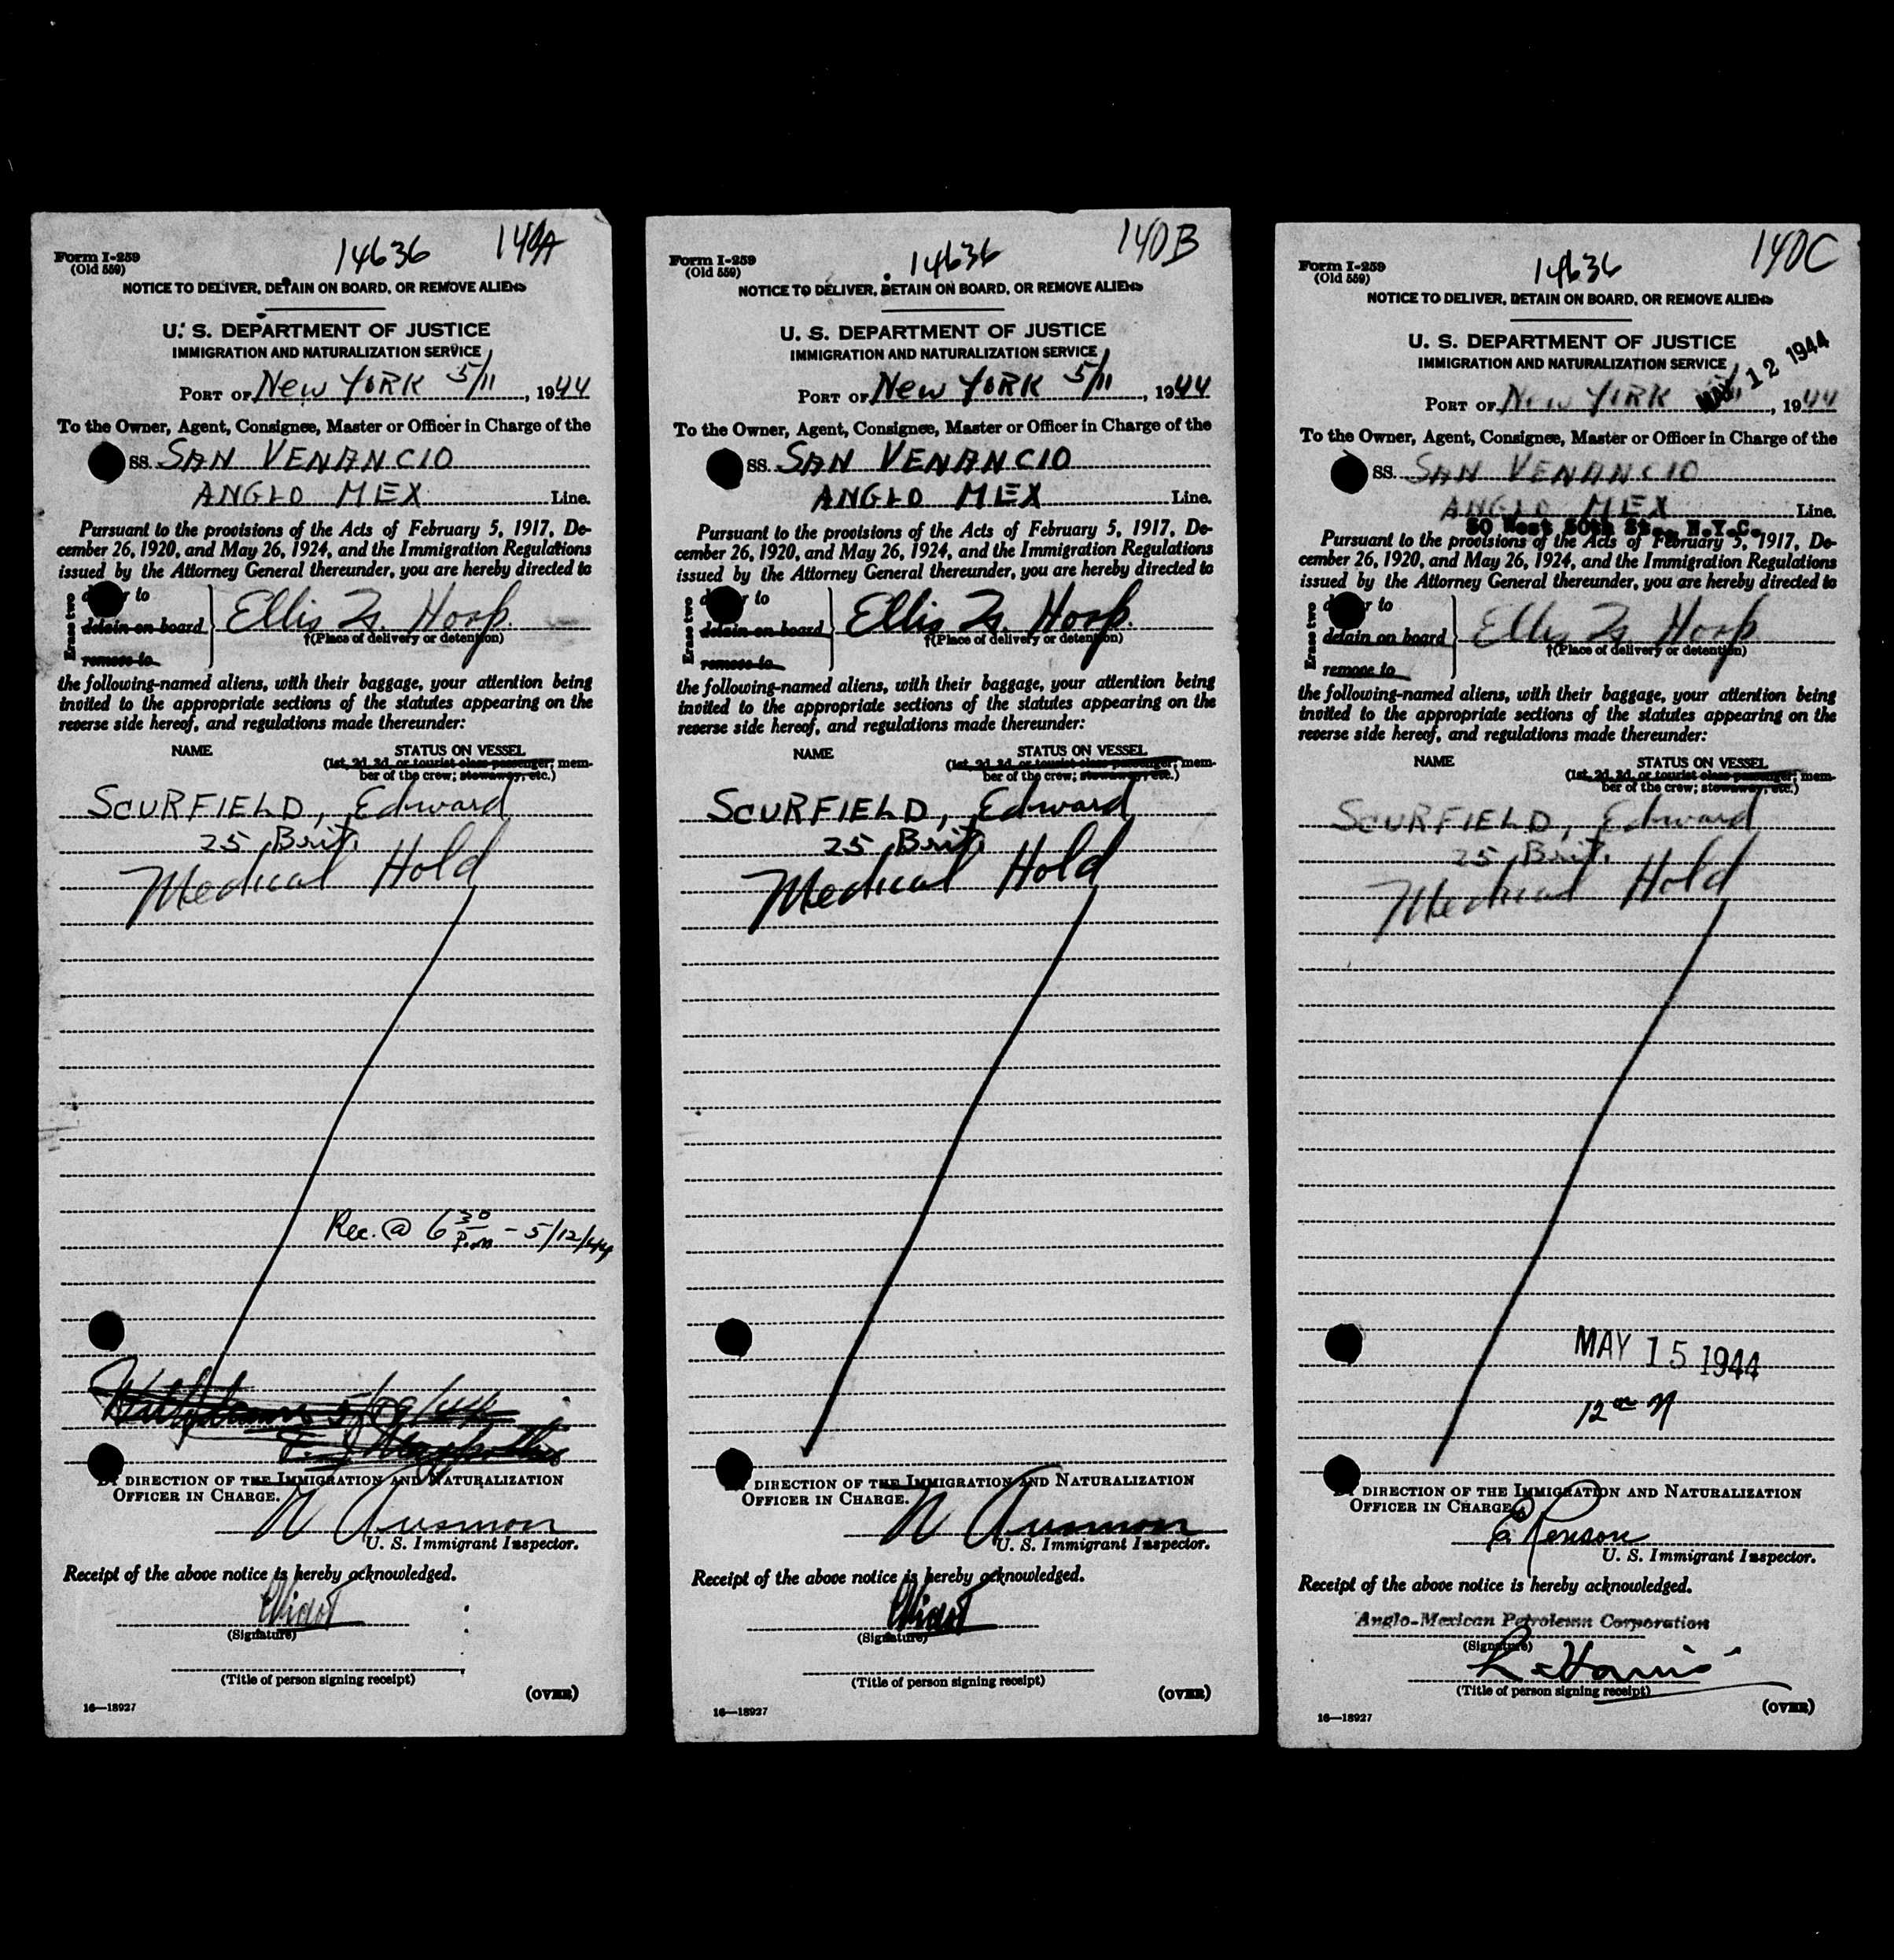 14636 140A
Form I-259
(Old 559)
NOTICE TO DELIVER, DETAIN ON BOARD, OR REMOVE ALIENS
U. S. DEPARTMENT OF JUSTICE
IMMIGRATION AND NATURALIZATION SERVICE
PORT OF New YORK 5/11, 1944
To the Owner, Agent, Consignee, Master or Officer in Charge of the
SS. SAN VENANCIO
ANGLO MEX Line.
Pursuant to the provisions of the Acts of February 5, 1917, De-
cember 26, 1920, and May 26, 1924, and the Immigration Regulations
issued by the Attorney General thereunder, you are hereby directed to
Erase two
to
detain on board
remove to
Ellis Is. Hosp.
†(Place of delivery or detention)
the following-named aliens, with their baggage, your attention being
invited to the appropriate sections of the statutes appearing on the
reverse side hereof, and regulations made thereunder:
NAME STATUS ON VESSEL
(1st, 2d, 3d, or tourist class passenger; mem-
ber of the crew; stowaway, etc.)
SCURFIELD, Edward
25, Brit.
Medical Hold
Rec. @ 6 30 P.m - 5/12/44
DIRECTION OF THE IMMIGRATION AND NATURALIZATION
OFFICER IN CHARGE.
U. S. Immigrant Inspector.
Receipt of the above notice is hereby acknowledged.
(Signature)
(Title of person signing receipt)
(OVER)
16—18927
14636 140B
Form I-259
(Old 559)
NOTICE TO DELIVER, DETAIN ON BOARD, OR REMOVE ALIENS
U. S. DEPARTMENT OF JUSTICE
IMMIGRATION AND NATURALIZATION SERVICE
PORT OF New YORK 5/11, 1944
To the Owner, Agent, Consignee, Master or Officer in Charge of the
SS. SAN VENANCIO
ANGLO MEX Line.
Pursuant to the provisions of the Acts of February 5, 1917, De-
cember 26, 1920, and May 26, 1924, and the Immigration Regulations
issued by the Attorney General thereunder, you are hereby directed to
Erase two
to
detain on board
remove to
Ellis Is. Hosp.
†(Place of delivery or detention)
the following-named aliens, with their baggage, your attention being
invited to the appropriate sections of the statutes appearing on the
reverse side hereof, and regulations made thereunder:
NAME STATUS ON VESSEL
(1st, 2d, 3d, or tourist class passenger; mem-
ber of the crew; stowaway, etc.)
SCURFIELD, Edward
25, Brit.
Medical Hold
DIRECTION OF THE IMMIGRATION AND NATURALIZATION
OFFICER IN CHARGE.
U. S. Immigrant Inspector.
Receipt of the above notice is hereby acknowledged.
(Signature)
(Title of person signing receipt)
(OVER)
16—18927
14636 140C
Form I-259
(Old 559)
NOTICE TO DELIVER, DETAIN ON BOARD, OR REMOVE ALIENS
U. S. DEPARTMENT OF JUSTICE
IMMIGRATION AND NATURALIZATION SERVICE
MAY 12 1944
PORT OF New YORK, 1944
To the Owner, Agent, Consignee, Master or Officer in Charge of the
SS. SAN VENANCIO
ANGLO MEX Line.
50 West 50th St., N.Y.C.
Pursuant to the provisions of the Acts of February 5, 1917, De-
cember 26, 1920, and May 26, 1924, and the Immigration Regulations
issued by the Attorney General thereunder, you are hereby directed to
Erase two
to
detain on board
remove to
Ellis Is. Hosp
†(Place of delivery or detention)
the following-named aliens, with their baggage, your attention being
invited to the appropriate sections of the statutes appearing on the
reverse side hereof, and regulations made thereunder:
NAME STATUS ON VESSEL
(1st, 2d, 3d, or tourist class passenger; mem-
ber of the crew; stowaway, etc.)
SCURFIELD, Edward
25, Brit.
Medical Hold
MAY 15 1944
DIRECTION OF THE IMMIGRATION AND NATURALIZATION
OFFICER IN CHARGE.
U. S. Immigrant Inspector.
Receipt of the above notice is hereby acknowledged.
Anglo-Mexican Petroleum Corporation
(Signature)
(Title of person signing receipt)
(OVER)
16—18927